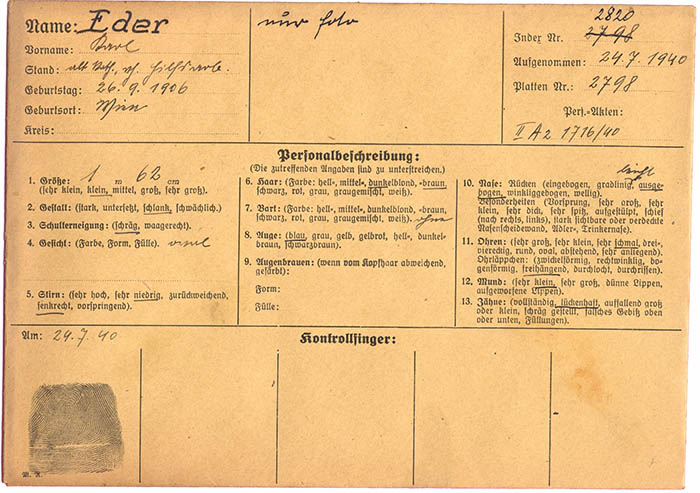 Name: Eder
Vorname: Karl
Stand: alt. Kath., vh. Hilfsarb.
Geburtstag: 26. 9. 1906
Geburtsort: Wien
Kreis:
nur Foto
2820
Index Nr. 2798
Aufgenommen: 24.7.1940
Platten Nr.: 2798
Pers.-Akten:
II A2 1716/40
Personalbeschreibung:
(Die zutreffenden Angaben sind zu unterstreichen.)
1. Größe: 1 m 62 cm
(sehr klein, klein, mittel, groß, sehr groß).
2. Gestalt: (stark, untersetzt, schlank, schwächlich.)
3. Schulterneigung: (schräg, waagerecht.)
4. Gesicht: (Farbe, Form, Fülle). oval
5. Stirn: (sehr hoch, sehr niedrig, zurückweichend,
senkrecht, vorspringend).
6. Haar: (Farbe: hell-, mittel-, dunkelblond, -braun,
schwarz, rot, grau, graugemischt, weiß).
7. Bart: (Farbe: hell-, mittel-, dunkelblond, -braun,
schwarz, rot, grau, graugemischt, weiß). ohne
8. Auge: (blau, grau, gelb, gelbrot, hell-, dunkel-
braun, schwarzbraun).
9. Augenbrauen: (wenn vom Kopfhaar abweichend,
gefärbt):
Form:
Fülle:
leicht
10. Nase: Rücken (eingebogen, gradlinig, ausge-
bogen, winkliggebogen, wellig).
Besonderheiten (Vorsprung, sehr groß, sehr
klein, sehr dick, sehr spitz, aufgestülpt, schief
(nach rechts, links), stark sichtbare oder verdeckte
Nasenscheidewand, Adler-, Trinkernase).
11. Ohren: (sehr groß, sehr klein, sehr schmal, drei-,
viereckig, rund, oval, abstehend, sehr anliegend).
Ohrläppchen: (zwickelförmig, rechtwinklig, bo-
genförmig, freihängend, durchlocht, durchrissen).
12. Mund: (sehr klein, sehr groß, dünne Lippen,
aufgeworfene Lippen).
13. Zähne: (vollständig, lückenhaft, auffallend groß
oder klein, schräg gestellt, falsches Gebiß oben
oder unten, Füllungen).
Am: 24.7.40
Kontrollfinger: